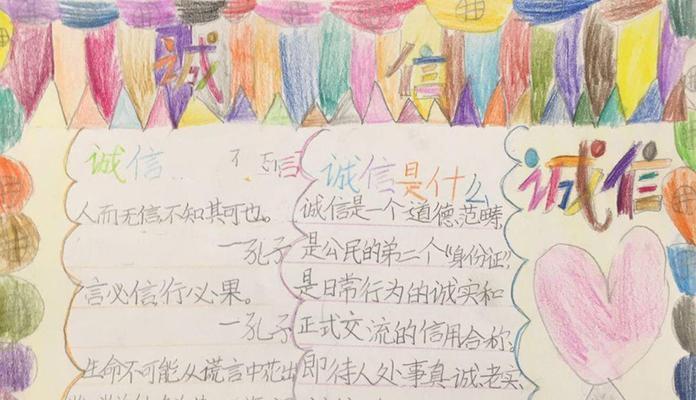 诚 信
诚信
信
人而无信,不知其可也。
—孔子
言必信,行必果。
—孔子
生命不可能从谎言中花出
诚信是什么
诚信是一个道德范畴,
是公民的第二个“身份证”,
是日常行为的诚实和
正式交流的信用合称。
即待人处事真诚、老实、
诚信